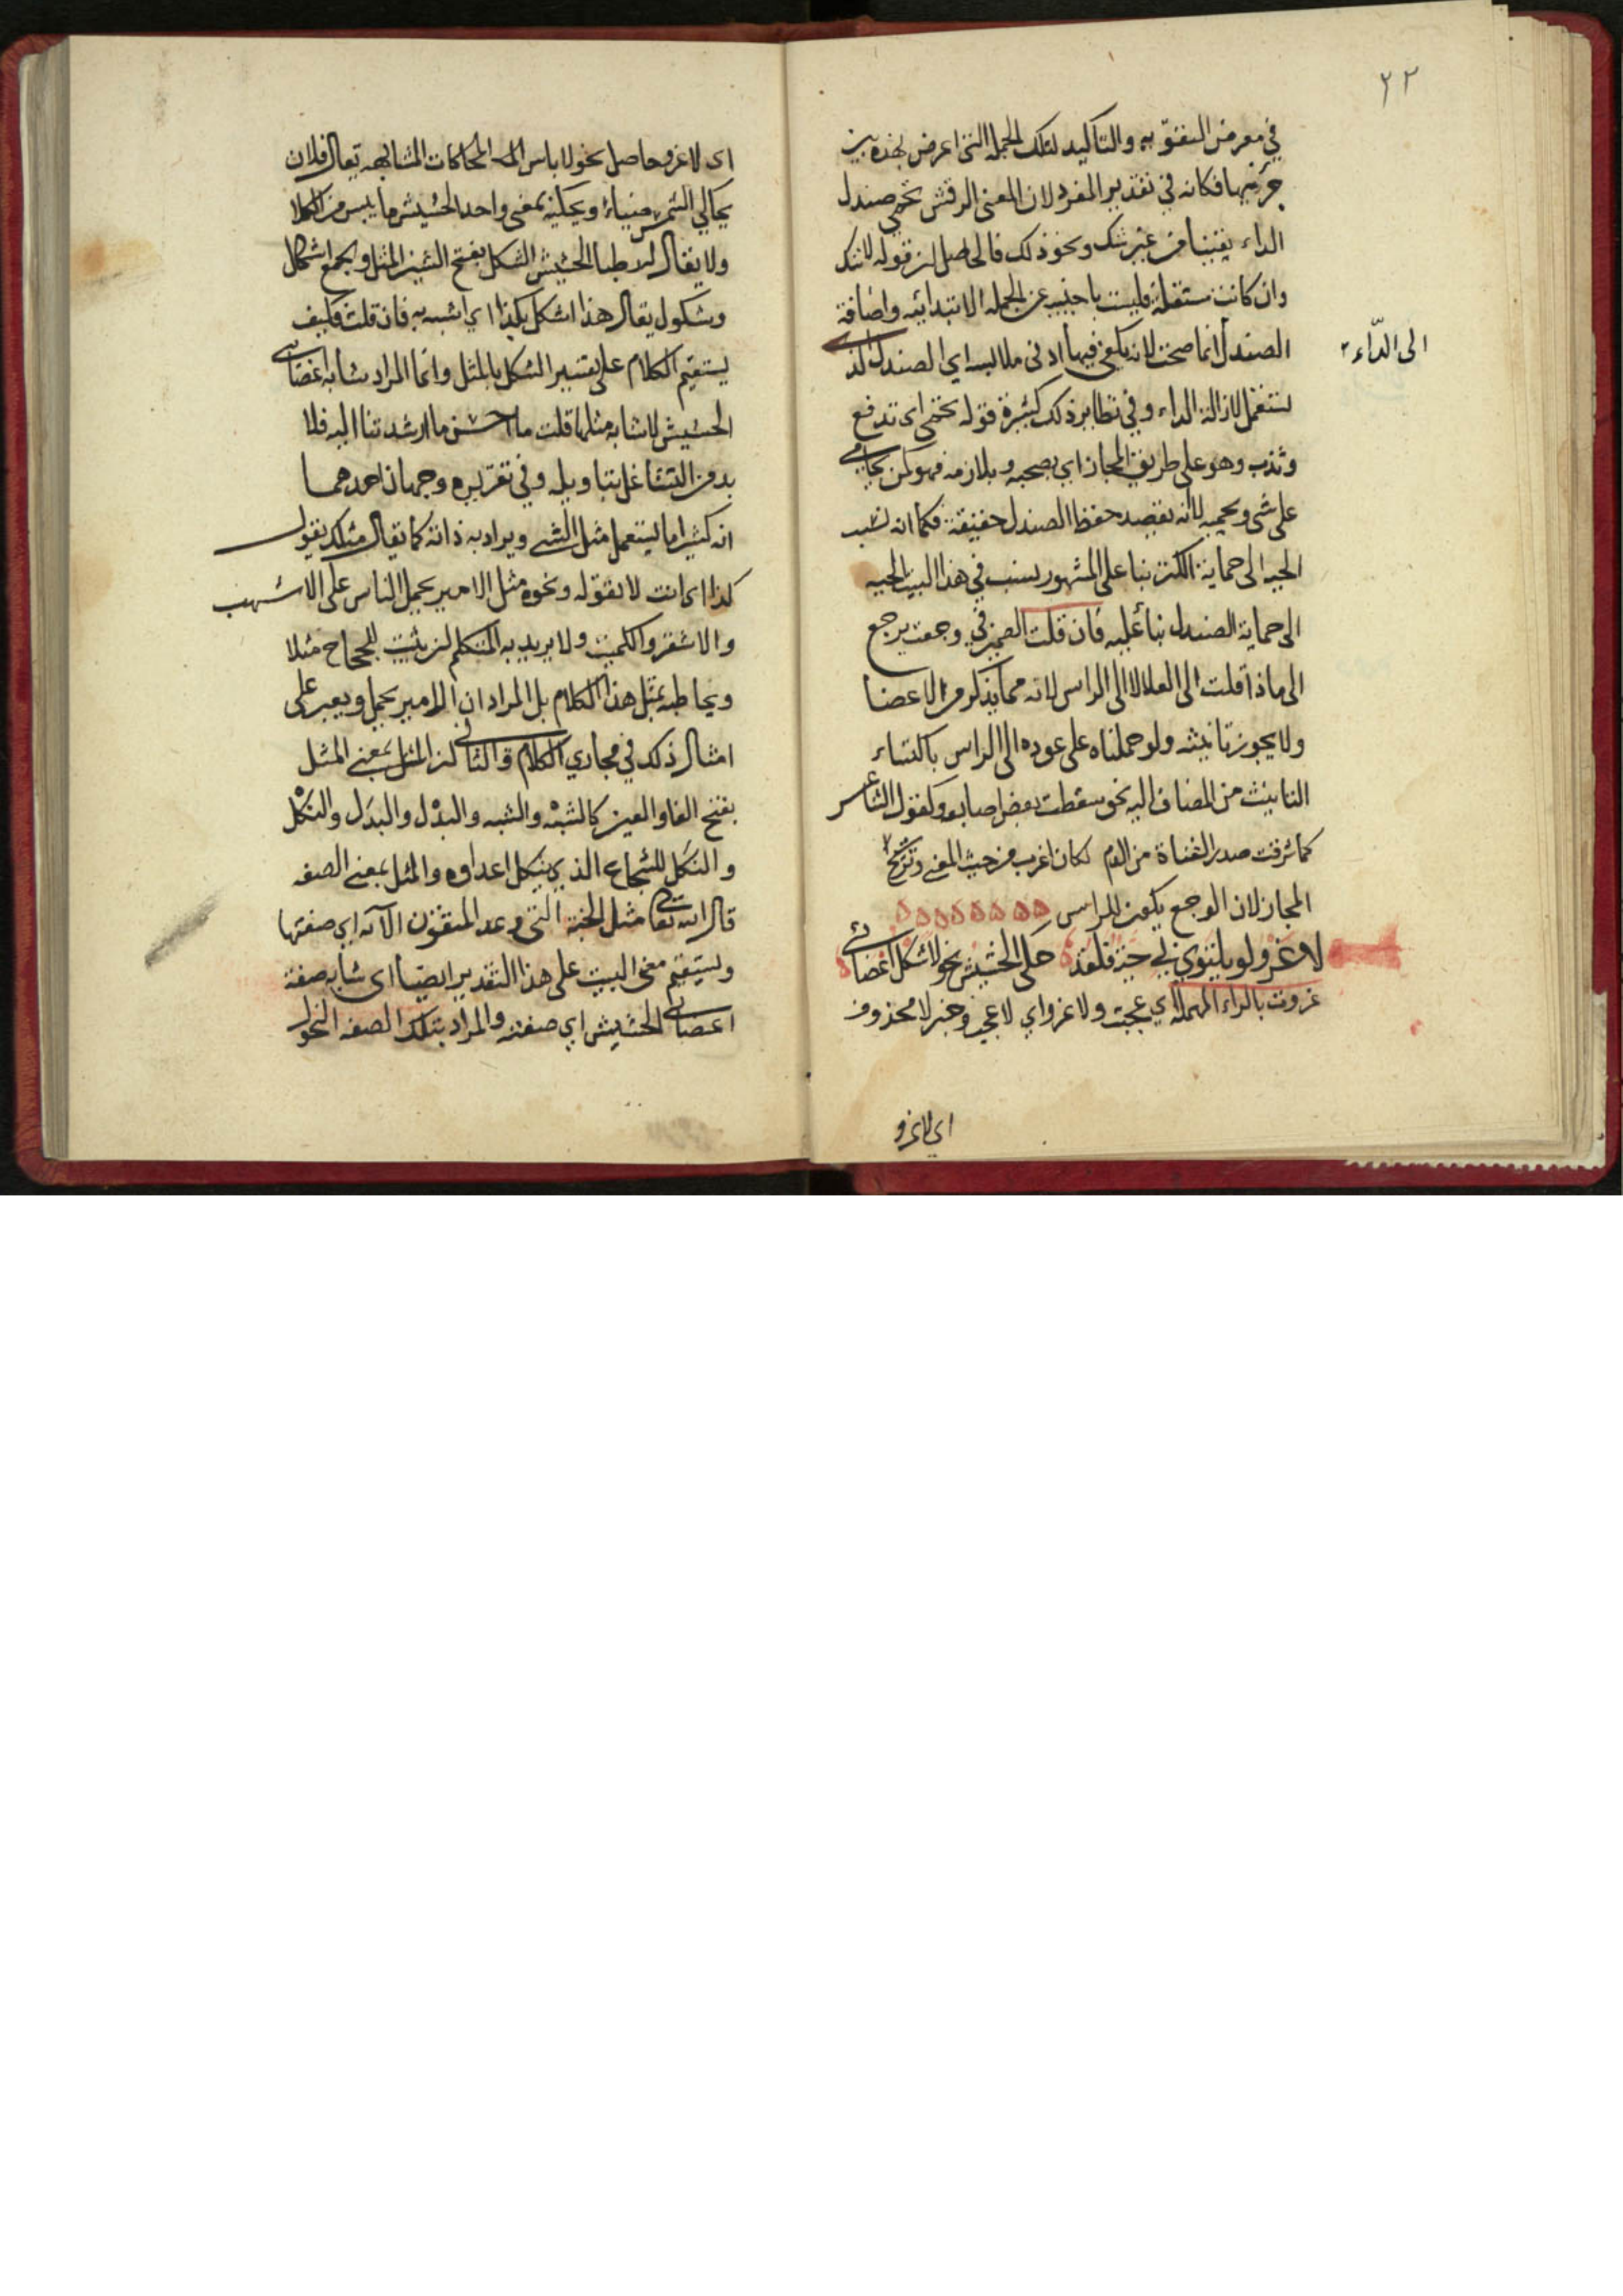 ٢٢
في معرض التفوّه به والتأكيد لتلك الجملة التي اعرض بهذه بين
جزئيها فكانه في تقدير المفرد لان المعنى الرقش تحمي صندل
الداء يقينا من غير شك ونحو ذلك فالحاصل ان قوله لا شك
وان كانت مستقلة فليست باجنبية عن الجملة الابتدائيه واضافة
الصندل انما صحت لانه يكفي فيها ادنى ملابسه اي الصندل الذي
الى الدّاء
يستعمل لازالة الداء وفي نظاير ذلك كثيرة قوله تحمي اي تدفع
وتذب وهو على طريق المجاز اي يصحبه ويلازمه فهو كمن يحامي
على شئ ويحميه لا انه يقصد حفظ الصندل حقيقة فكما انه نسب
الحيه الى حماية الكنز بنا على المشهور نسب في هذا البيت الحيه
الى حماية الصندل بنأ عليه فان قلت الضمير في وجعت يرجع
الى ماذا قلت الى العلا لا الى الراس لانه مما يذكر من الاعضا
ولا يجوز تانيثه ولو حملناه على عوده الى الراس باكتساء
التانيث من المضاف اليه نحو سقطت بعض اصابعه وكقول الشاعر
كما شرقت صدر القناة من الدم لكان اغرب من حيث المعنى وترشح
المجاز لان الوجع يكون للراس
لا غرو لو يلتوي في حيز قلمه حكى الحشيش نحولا شكل اعضائي
غروت بالراء المهملة اي عجبت ولا غرو اي لا عجب وخبر لا محذوف
اي لا غرو
اى لا غرو حاصل نحو لا باس المحاكات المشابهه يقال فلان
يحاكي الشمس ضياء ويحكيه بمعنى واحد الحشيش ما يبس من الكلا
ولا يقال للرطب الحشيش الشكل بفتح الشين المثل ويجمع اشكال
وشكول يقال هذا اشكل بكذا اي اشبه به فان قلت فكيف
يستقيم الكلام على تفسير الشكل بالمثل وانما المراد شابه اعضائي
الحشيش لا شابه مثلها قلت ما احسن ما ارشدتنا اليه فلا
بد من التشاغل بتاويله وفي تقريره وجهان احدهما
انه كثيرا ما يستعمل مثل الشي ويراد به ذاته كما يقال مثلك يقول
كذا اى انت لا تقوله ونحوه مثل الامير يحمل الناس على الاشهب
والاشقر والكميت ولا يريد به المتكلم ان يثبت للحجاج مثلا
ويخاطبه بمثل هذا الكلام بل المراد ان الامير يحمل ويعبر على
امثال ذلك في مجاري الكلام والثاني ان المثل بمعنى المثل
بفتح الفا والعين كالشبْه والشبه والبدْل والبدَل والنكْل
والنكَل للشجاع الذي ينكل اعداؤه والمثل بمعنى الصفه
قال الله تعالى مثل الجنة التي وعد المتقون الآيه اي صفتها
ويستقيم معنى البيت على هذا التقدير ايضا اى شابه صفة
اعضائي الحشيش اي صفته والمراد بتلك الصفه النحول